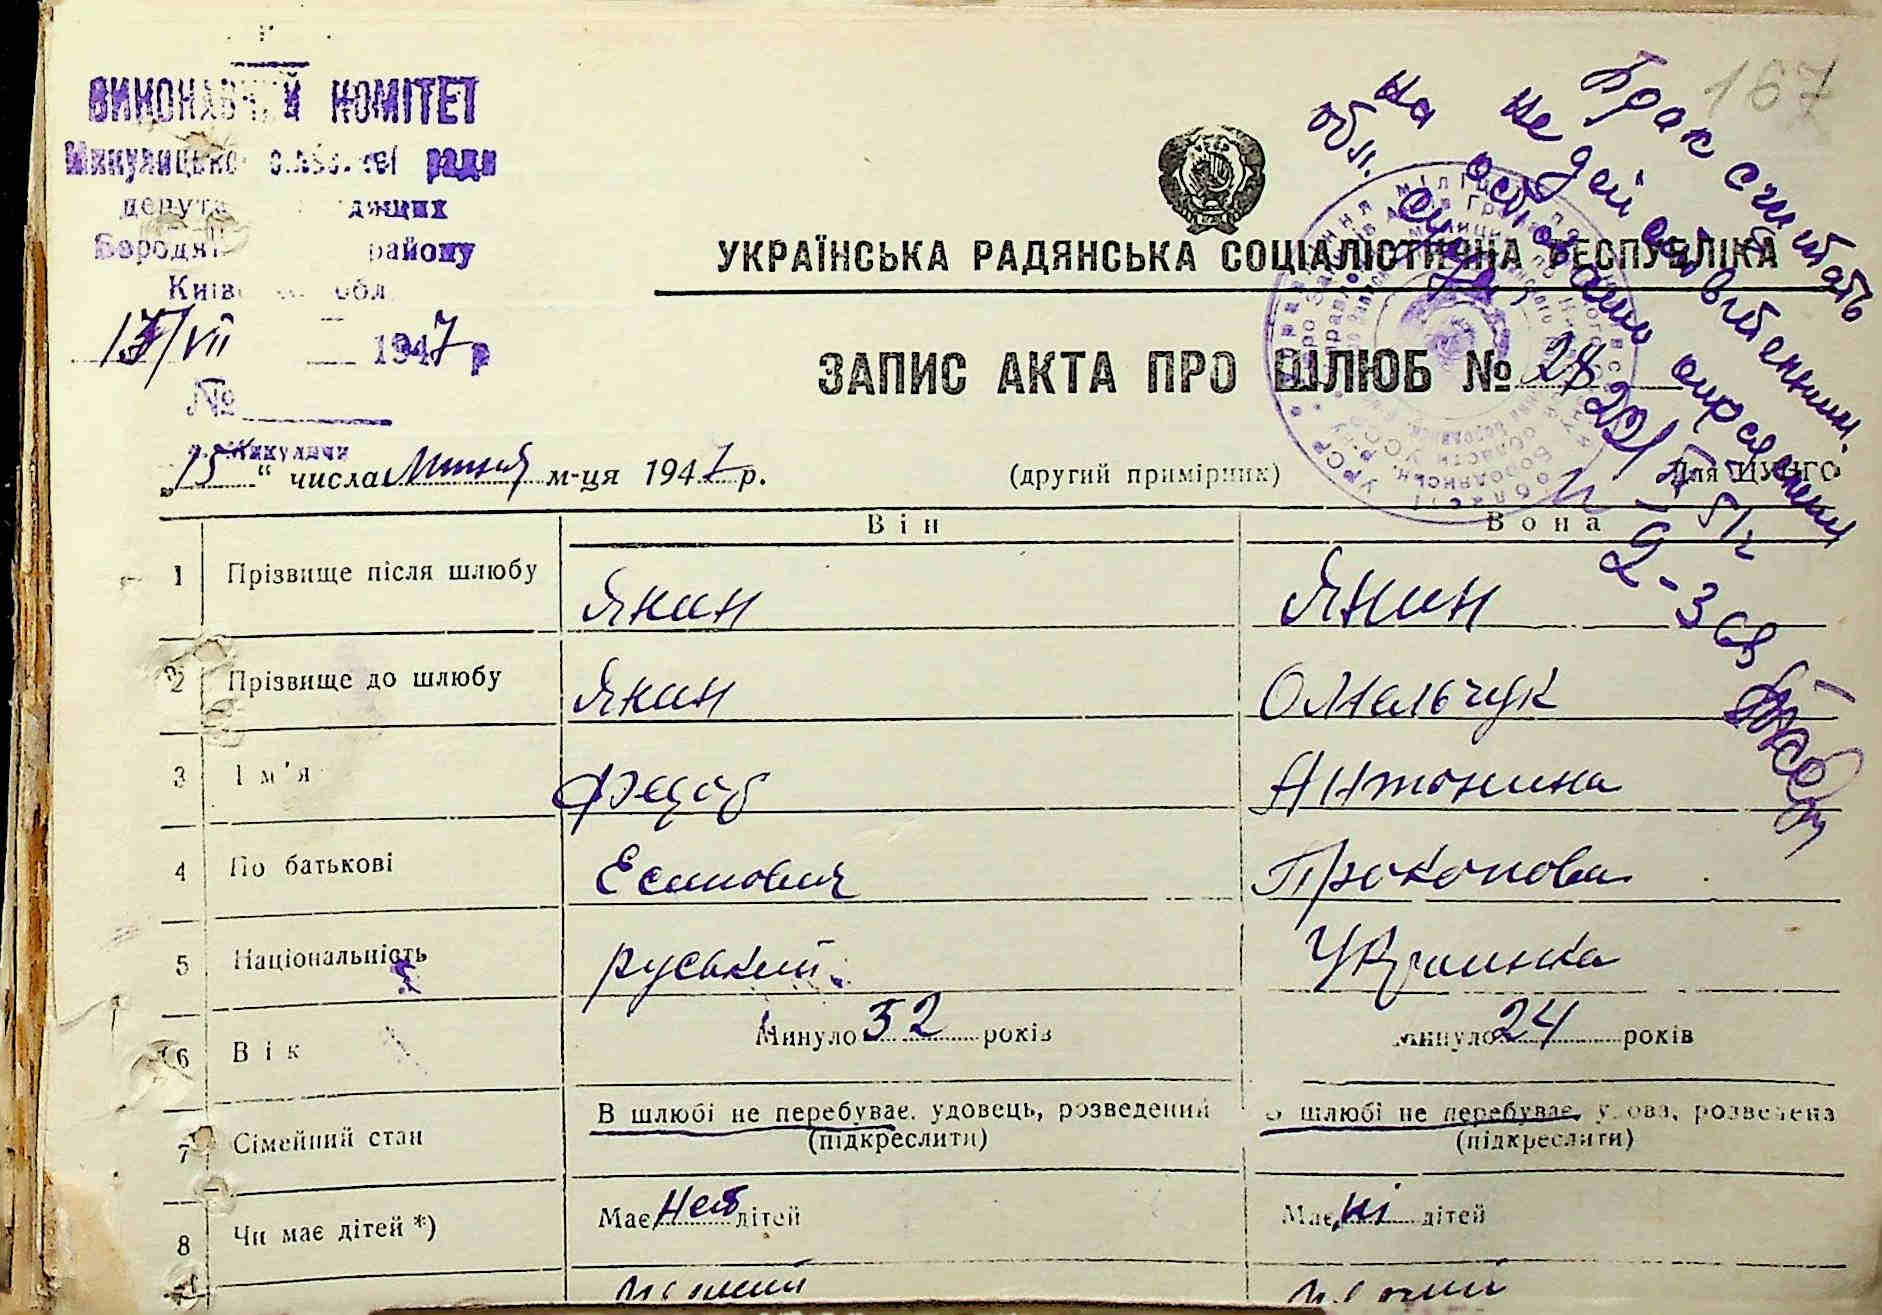 ВИКОНАВЧИЙ КОМІТЕТ
Микулицької сільської ради
депута дящих
Бородян району
Київ обл.
17/VII 1947 р
№
с. Микуличи
167
Брак считать
не действительним
на основании определения
обл. суда,
УКРАЇНСЬКА РАДЯНСЬКА СОЦІАЛІСТИЧНА РЕСПУБЛІКА
ЗАПИС АКТА ПРО ШЛЮБ № 28
„15“ числа Липня м-ця 1947 р. (другий примірник) Для ЦУЗАГС
Він Вона
1 Прізвище після шлюбу Янин Янин
2 Прізвище до шлюбу Янин Омельчук
3 Ім'я Федор Антонина
4 По батькові Есипович Прокопова
5 Національність руський Украинка
6 Вік Минуло 32 років Минуло 24 років
7 Сімейний стан В шлюбі не перебуває, удовець, розведений В шлюбі не перебуває, удова, розведена
(підкреслити) (підкреслити)
8 Чи має дітей *) Має нет дітей Має ні дітей